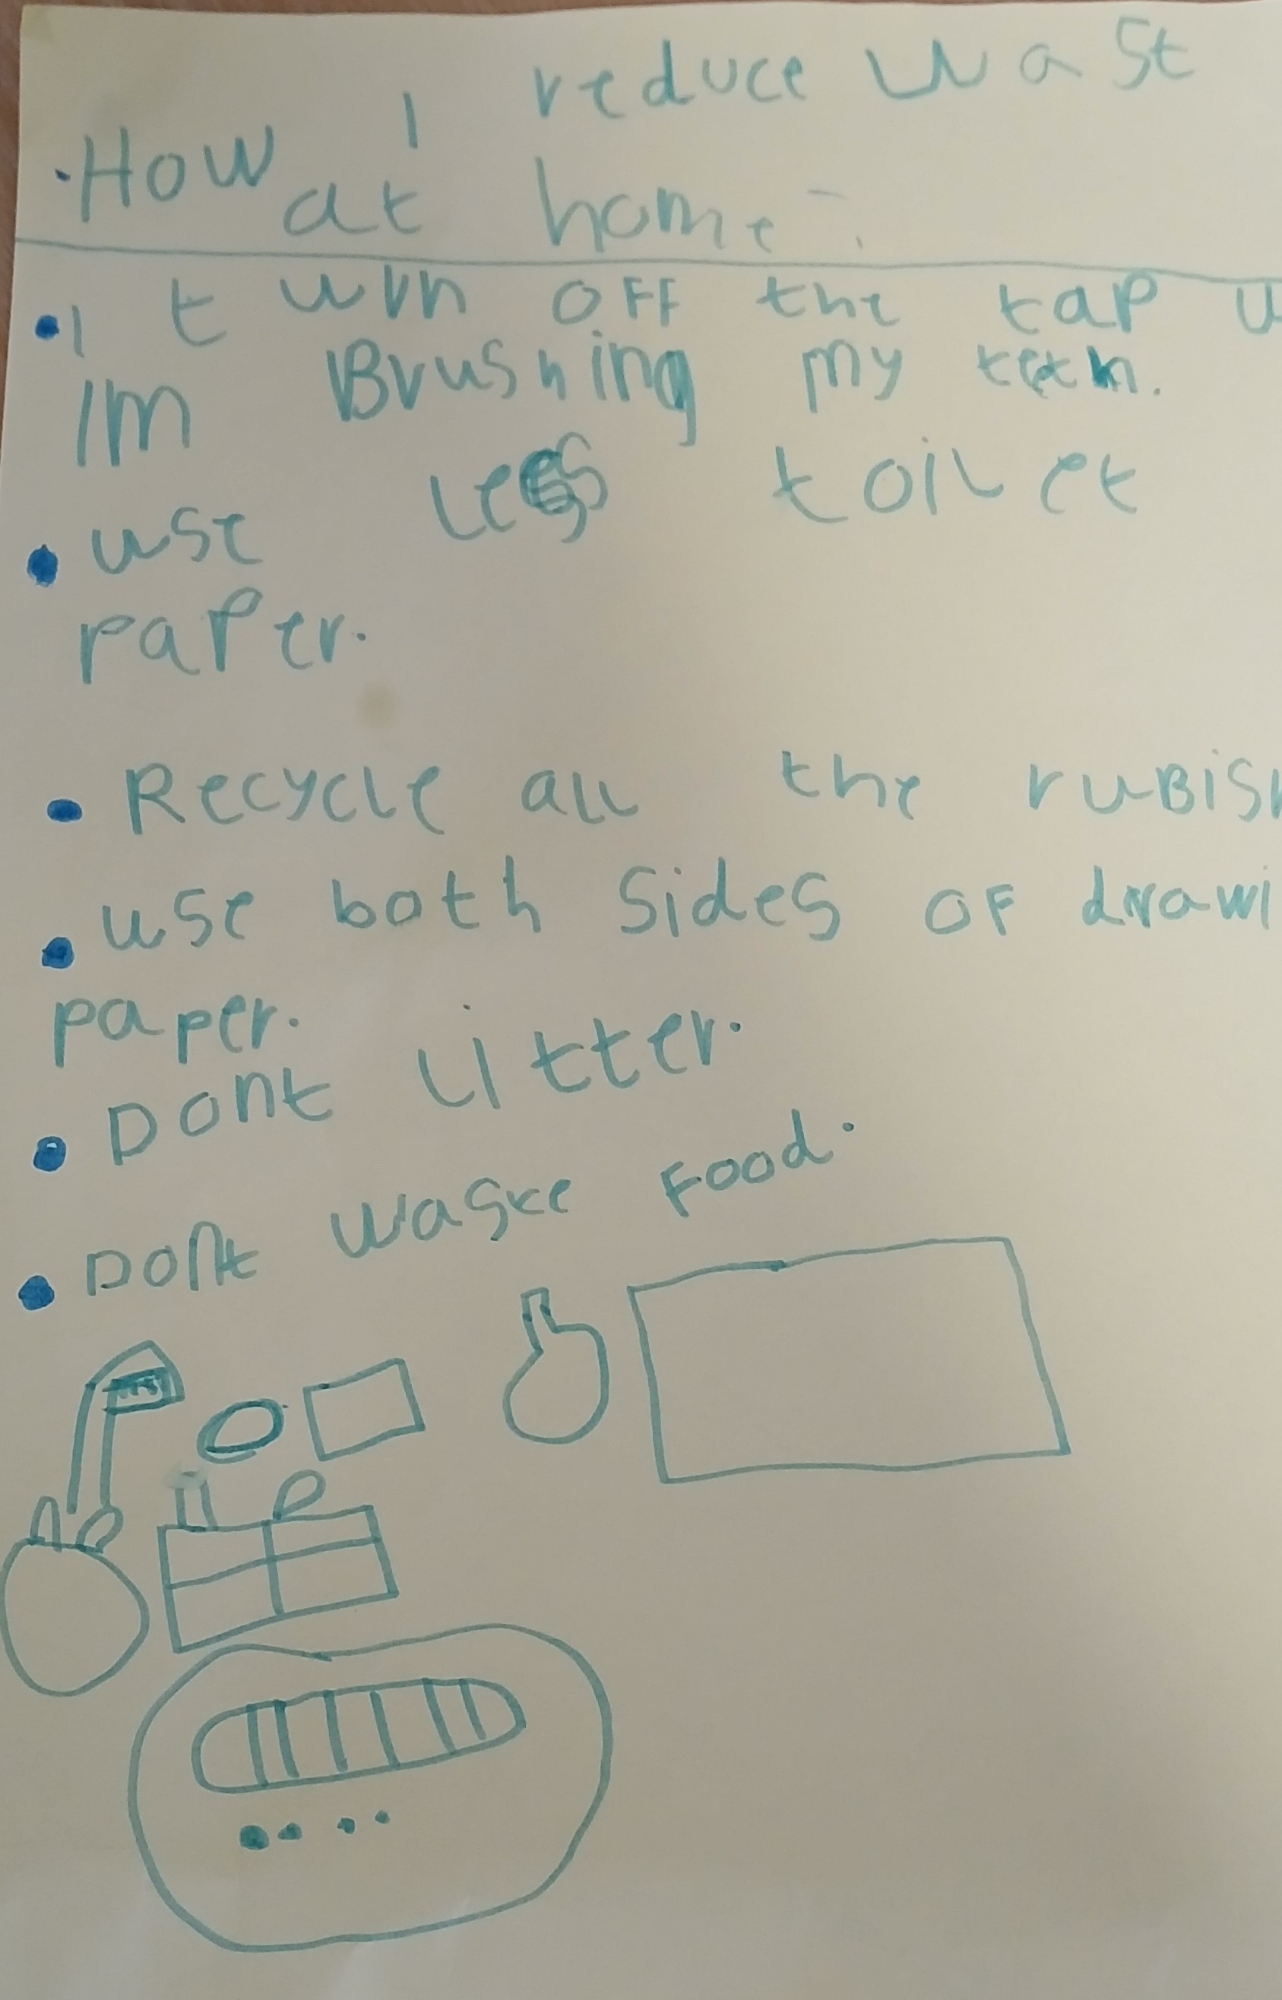 ·How I reduce wast
at home-.
• I turn OFF the tap
Im Brushing my teeth.
• use less toilet
paper.
• Recycle all the rubish
• use both sides of drawi
paper.
• Dont litter.
• Dont waste Food.